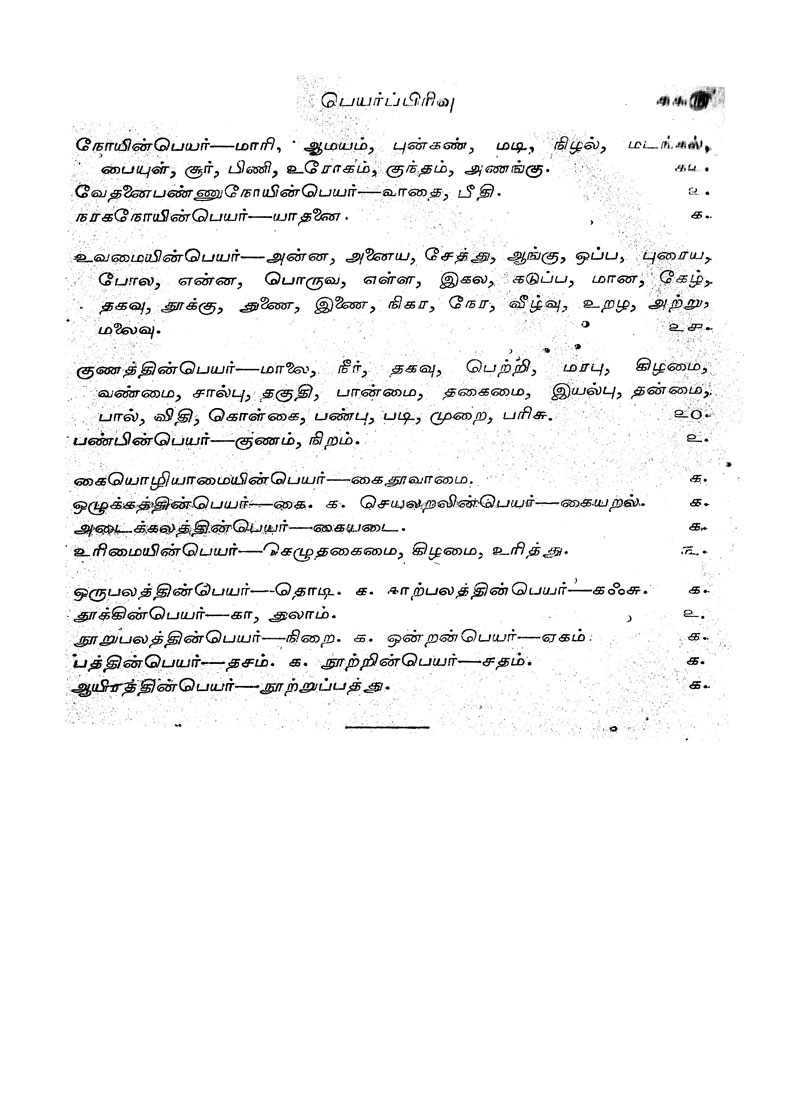 பெயர்ப்பிரிவு
நோயின்பெயர்—மாரி, ஆமயம், புன்கண், மடி, நிழல், மடங்கல்,
பையுள், சூர், பிணி, உரோகம், குந்தம், அணங்கு. ௧௨.
வேதனைபண்ணுநோயின்பெயர்—வாதை, பீதி. ௨.
நரகநோயின்பெயர்—யாதனை. ௧.
உவமையின்பெயர்—அன்ன, அனைய, சேத்து, ஆங்கு, ஒப்ப, புரைய,
போல, என்ன, பொருவ, எள்ள, இகல, கடுப்ப, மான, கேழ்,
தகவு, தூக்கு, துணை, இணை, நிகர, நேர, வீழ்வு, உறழ, அற்று,
மலைவு. ௨௪.
குணத்தின்பெயர்—மாலை, நீர், தகவு, பெற்றி, மரபு, கிழமை,
வண்மை, சால்பு, தகுதி, பான்மை, தகைமை, இயல்பு, தன்மை,
பால், விதி, கொள்கை, பண்பு, படி, முறை, பரிசு. ௨௦.
பண்பின்பெயர்—குணம், நிறம். ௨.
கையொழியாமையின்பெயர்—கைதூவாமை. ௧.
ஒழுக்கத்தின்பெயர்—கை. ௧. செயலறலின்பெயர்—கையறல். ௧.
அடைக்கலத்தின்பெயர்—கையடை. ௧.
உரிமையின்பெயர்—கெழுதகைமை, கிழமை, உரித்து. ௩.
ஒருபலத்தின்பெயர்—தொடி. ௧. காற்பலத்தின்பெயர்—கஃசு. ௧.
தூக்கின்பெயர்—கா, துலாம். ௨.
நூறுபலத்தின்பெயர்—நிறை. ௧. ஒன்றன்பெயர்—ஏகம். ௧.
பத்தின்பெயர்—தசம். ௧. நூற்றின்பெயர்—சதம். ௧.
ஆயிரத்தின்பெயர்—நூற்றுப்பத்து. ௧.